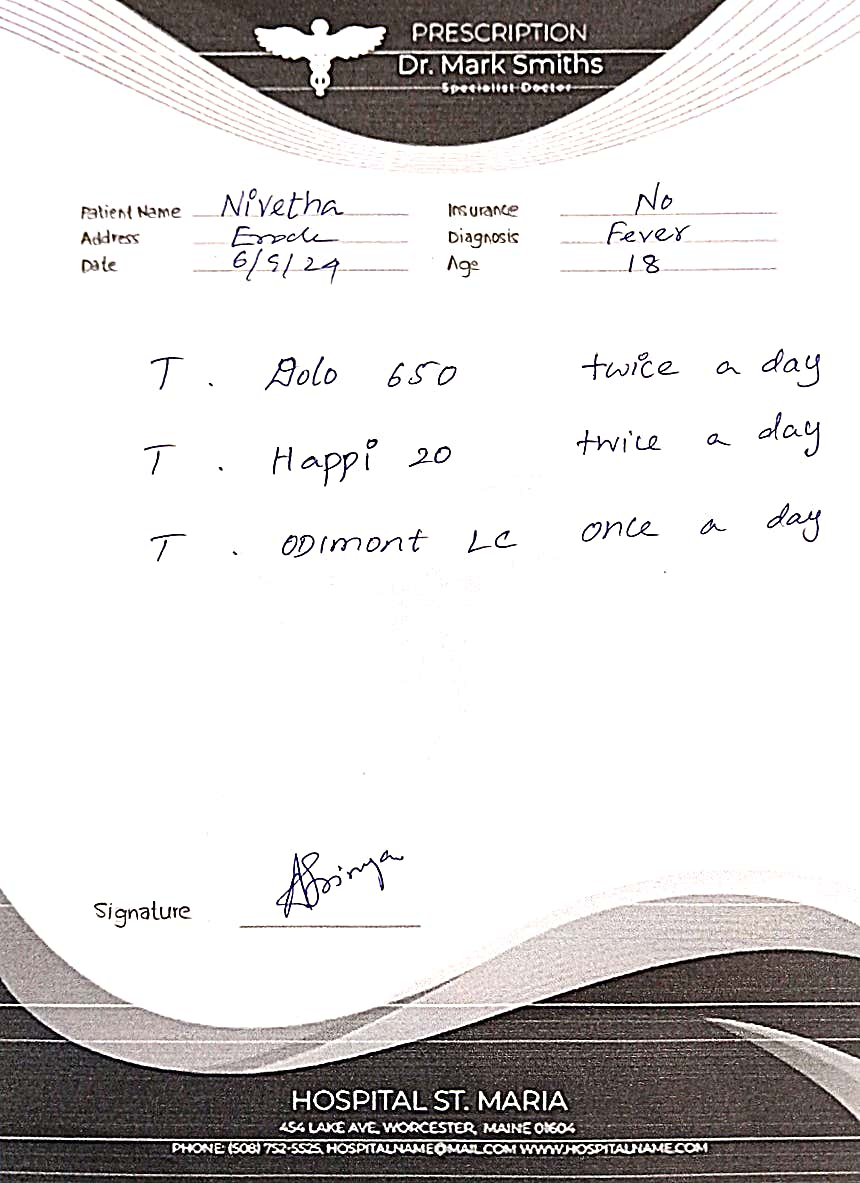 PRESCRIPTION
Dr. Mark Smiths
Specialist Doctor
Patient Name Nivetha Insurance No
Address Erode Diagnosis Fever
Date 6/9/24 Age 18
T. Dolo 650 twice a day
T. Happi 20 twice a day
T. ODimont LC once a day
Signature
HOSPITAL ST. MARIA
454 LAKE AVE, WORCESTER, MAINE 01604
PHONE: (508) 752-5525, HOSPITALNAME@MAIL.COM WWW.HOSPITALNAME.COM